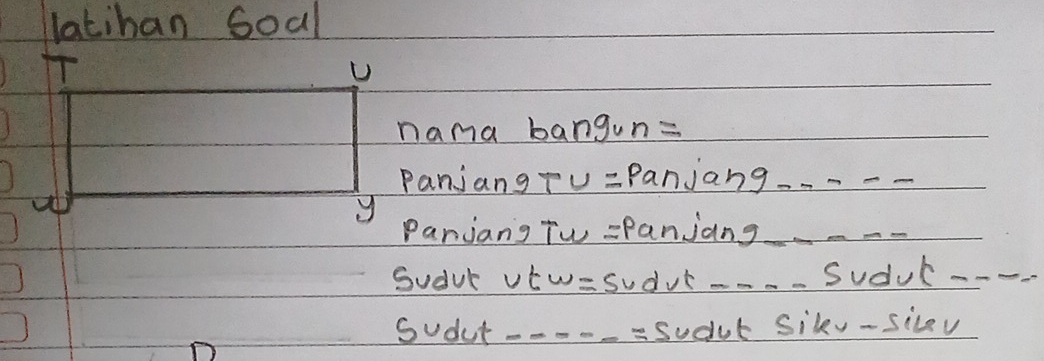 latihan Soal
T U
nama bangun=
Panjang TU = Panjang -----
w y
Panjang Tw = Panjang -----
Sudut utw = sudut ---- Sudut ----
Sudut ----- = sudut Siku-siku
D